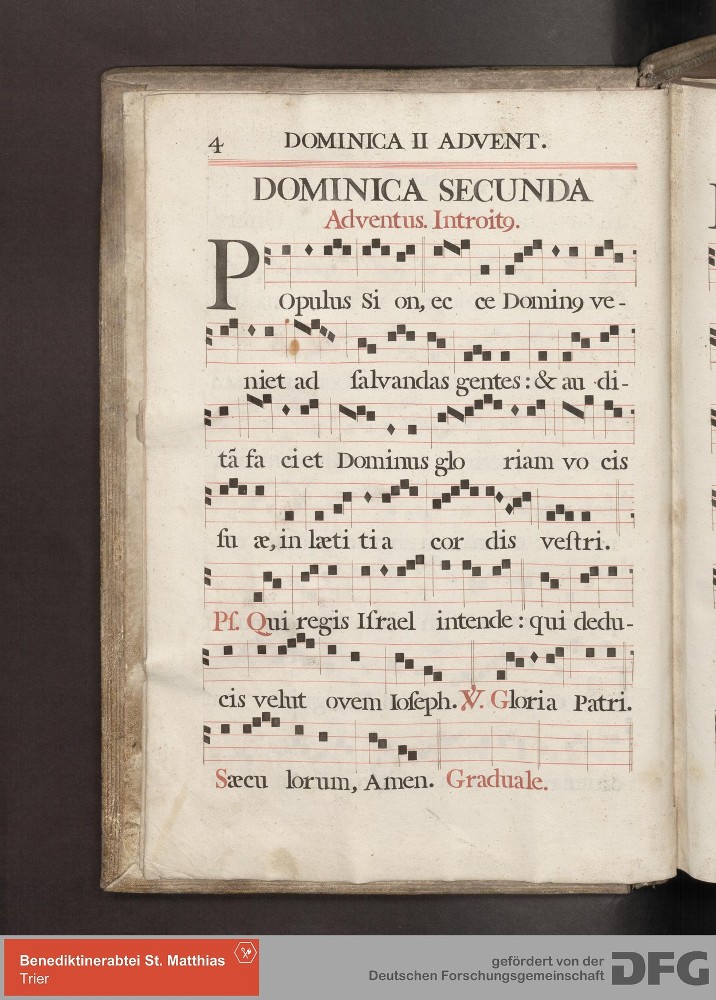 4 DOMINICA II ADVENT.
DOMINICA SECUNDA
Adventus. Introitꝯ.
POpulus Si on, ec ce Dominꝯ ve-
niet ad ſalvandas gentes: & au di-
tã fa ciet Dominus glo riam vo cis
ſu æ, in læti ti a cor dis veſtri.
Pſ. Qui regis Iſrael intende: qui dedu-
cis velut ovem Ioſeph. ℣. Gloria Patri.
Sæcu lorum, Amen. Graduale.
Benediktinerabtei St. Matthias
Trier
gefördert von der
Deutschen Forschungsgemeinschaft
DFG